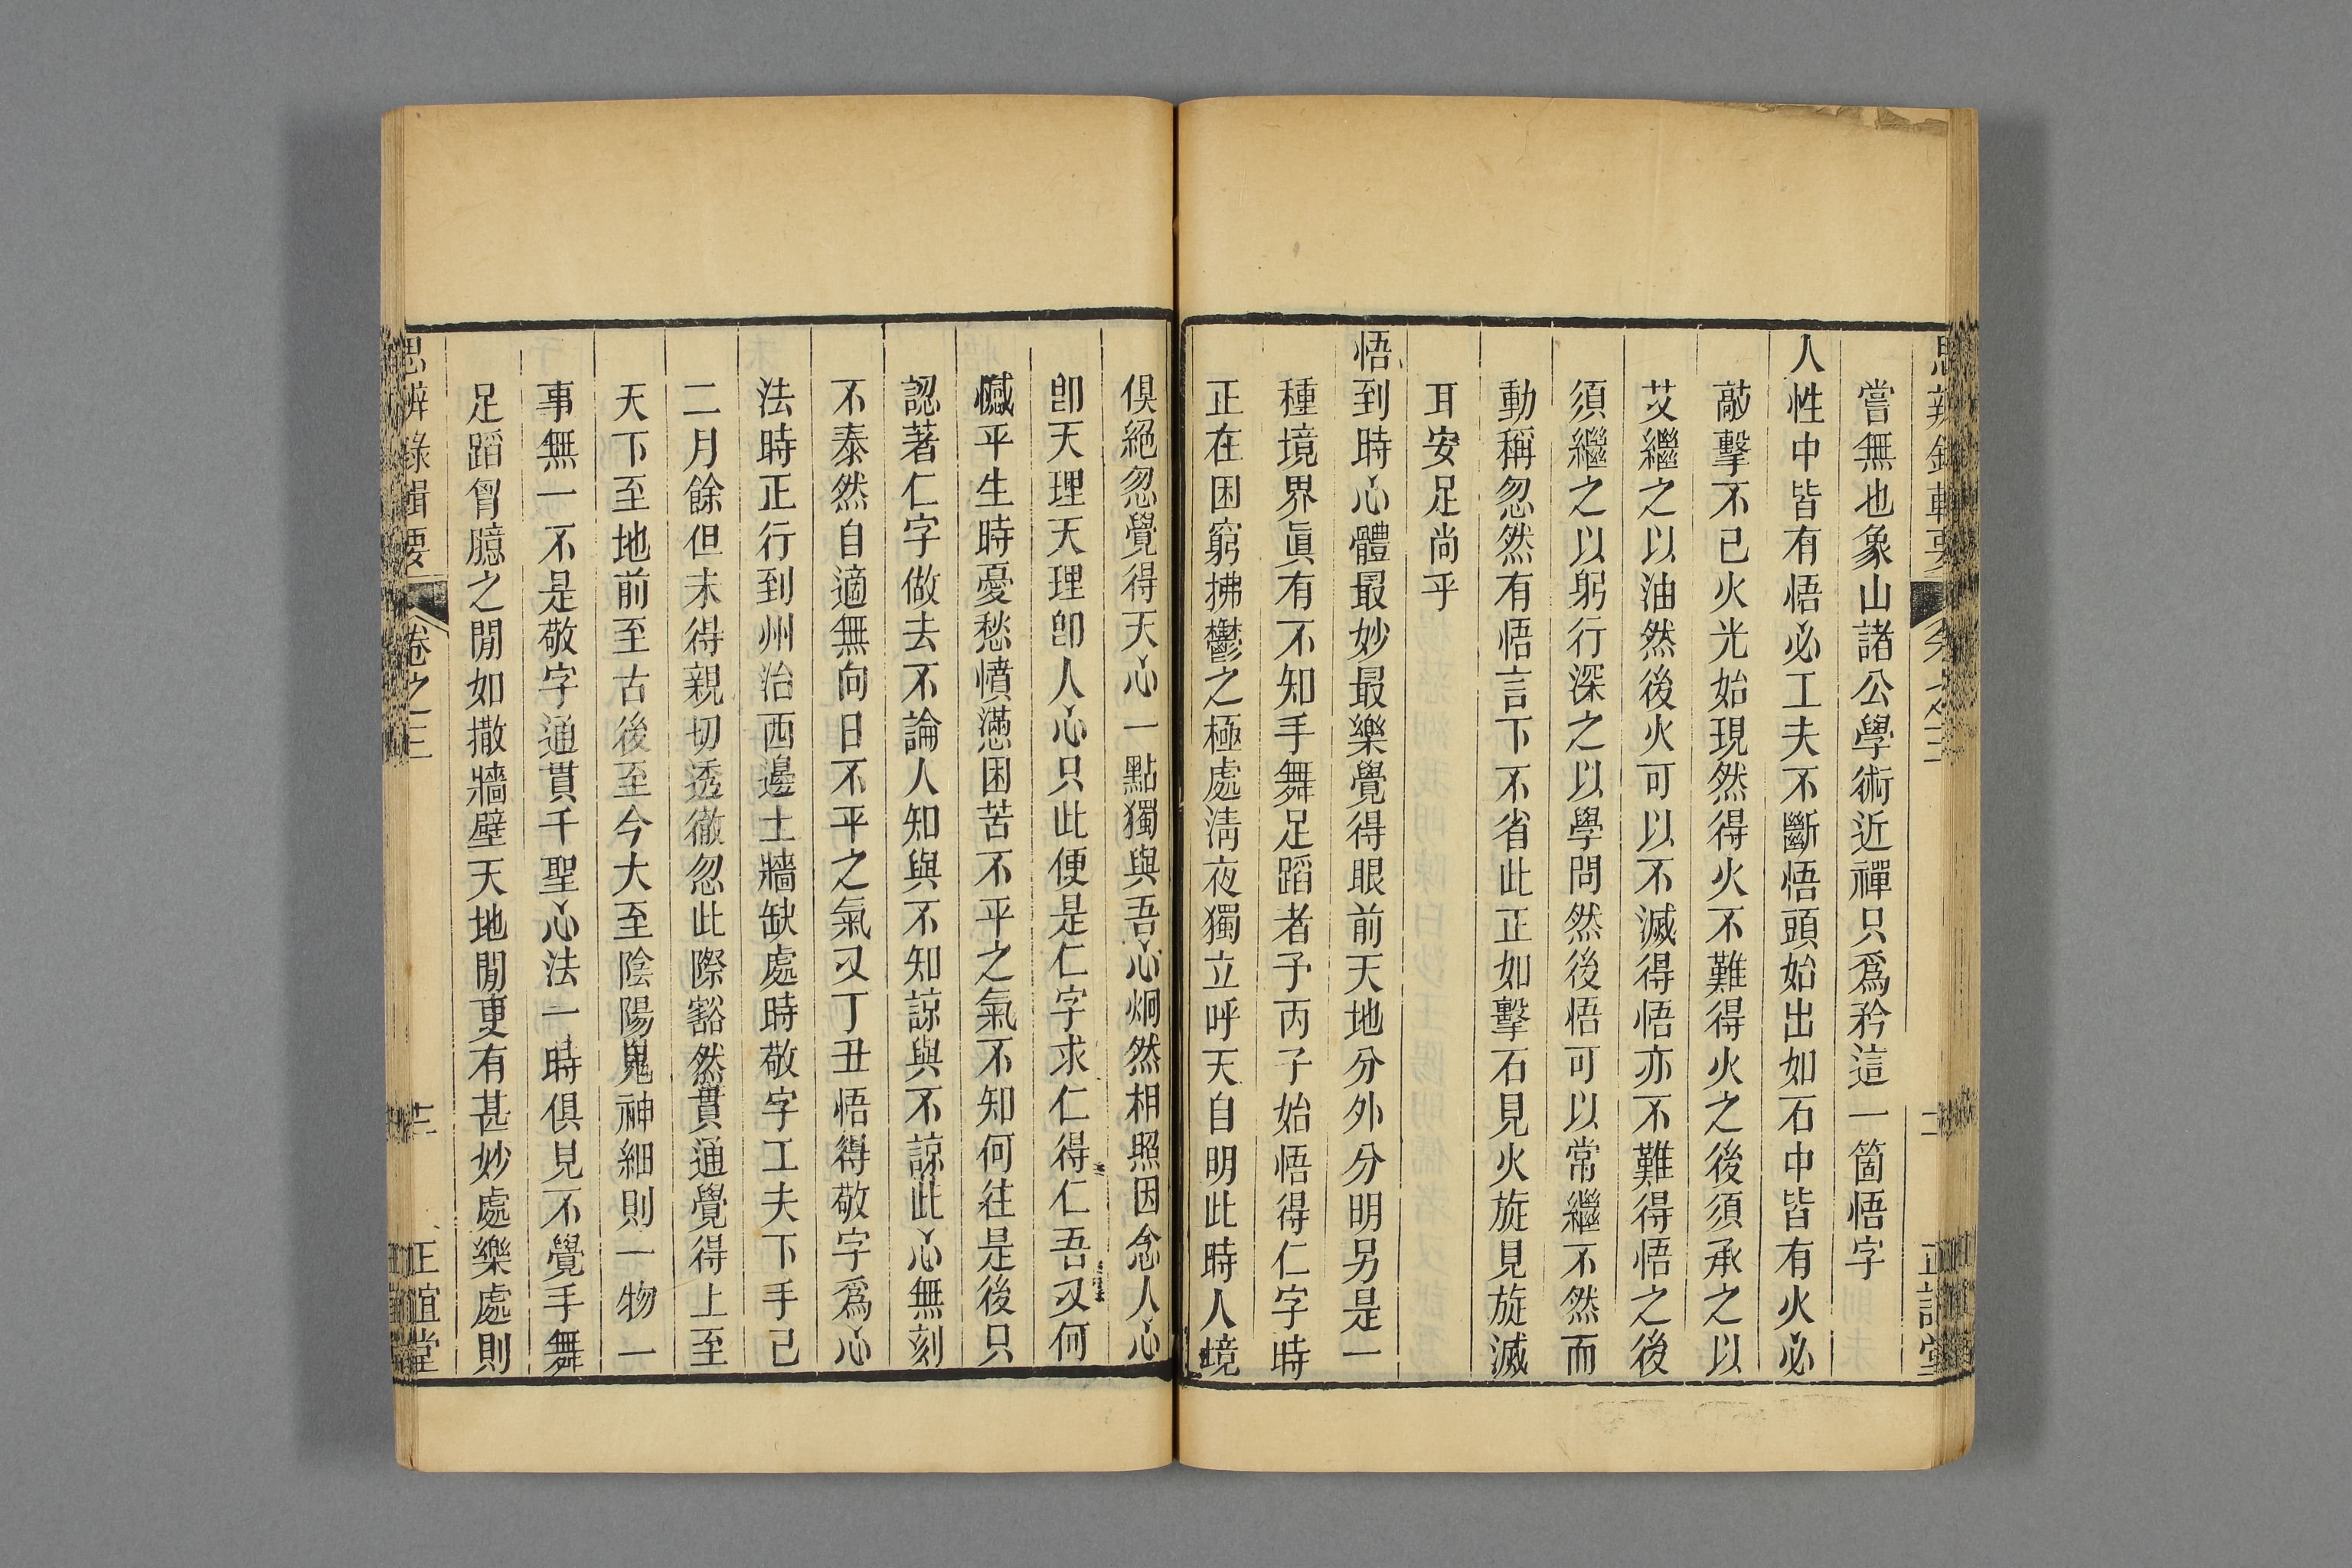 嘗無也象山諸公學術近禪只爲矜這一箇悟字
人性中皆有悟必工夫不斷悟頭始出如石中皆有火必
敲擊不已火光始現然得火不難得火之後須承之以
艾繼之以油然後火可以不滅得悟亦不難得悟之後
須繼之以躬行深之以學問然後悟可以常繼不然而
動稱忽然有悟言下不省此正如擊石見火旋見旋滅
耳安足尚乎
悟到時心體最妙最樂覺得眼前天地分外分明另是一
種境界眞有不知手舞足蹈者予丙子始悟得仁字時
正在困窮拂鬱之極處淸夜獨立呼天自明此時人境
俱絕忽覺得天心一點獨與吾心炯然相照因念人心
卽天理天理卽人心只此便是仁字求仁得仁吾又何
憾平生時憂愁憤懣困苦不平之氣不知何往是後只
認著仁字做去不論人知與不知諒與不諒此心無刻
不泰然自適無向日不平之氣又丁丑悟得敬字爲心
法時正行到州治西邊土牆缺處時敬字工夫下手已
二月餘但未得親切透徹忽此際豁然貫通覺得上至
天下至地前至古後至今大至陰陽鬼神細則一物一
事無一不是敬字通貫千聖心法一時俱見不覺手舞
足蹈胷臆之閒如撒牆壁天地閒更有甚妙處樂處則
思辨錄輯要 卷之三 十二 正誼堂